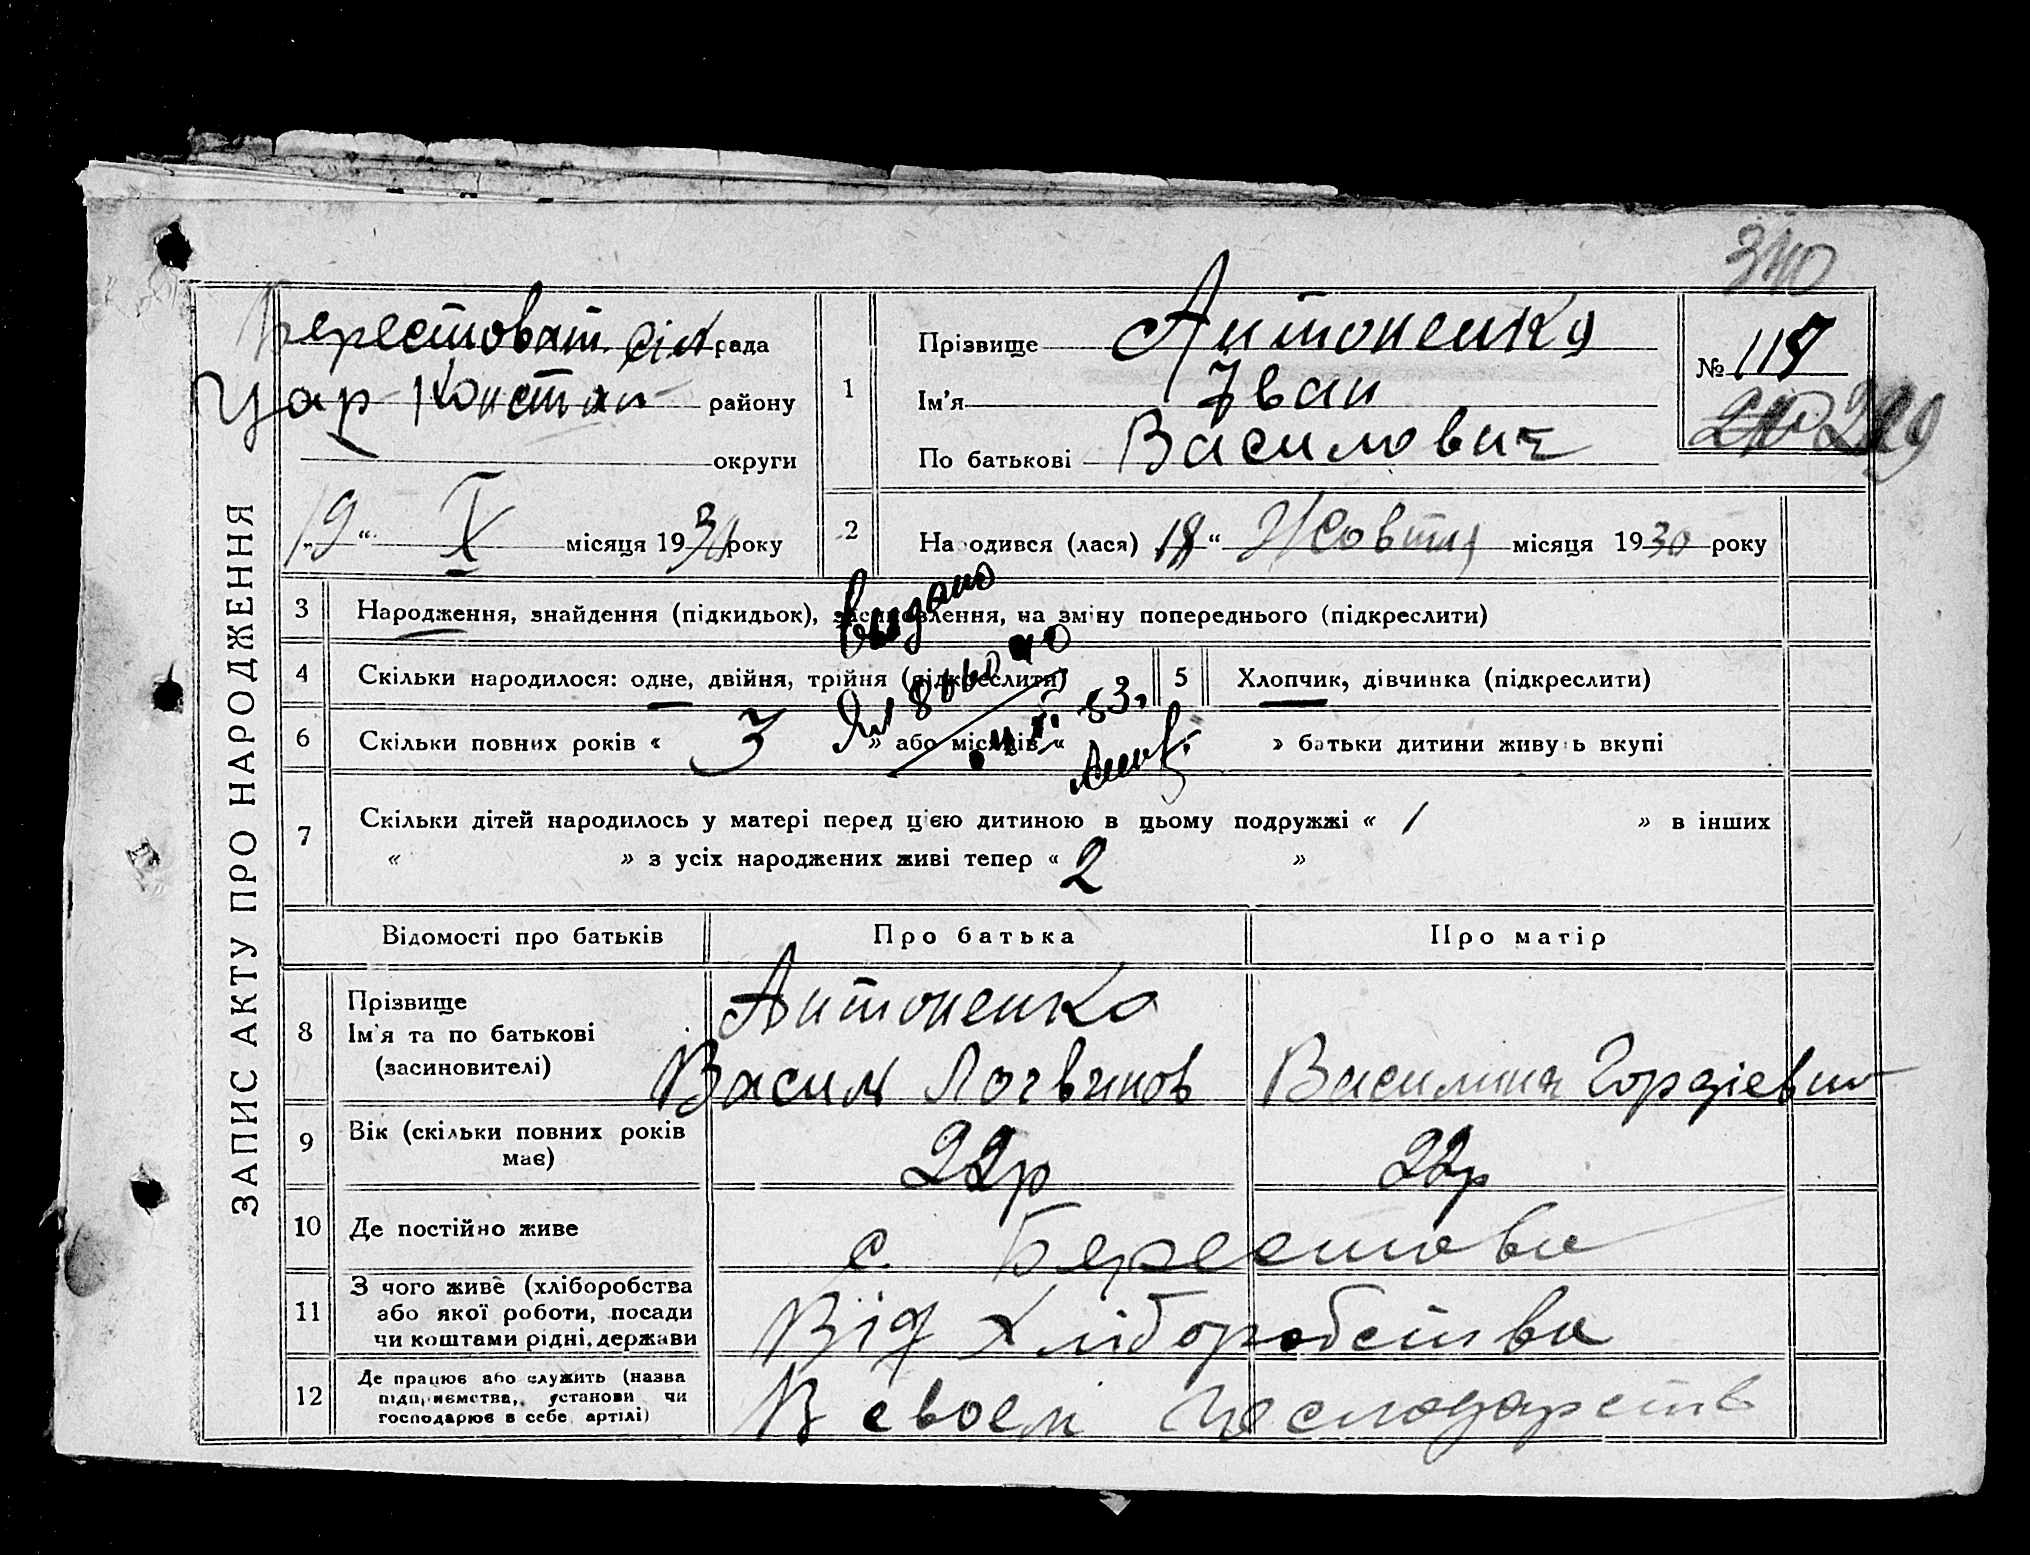 340
ЗАПИС АКТУ ПРО НАРОДЖЕННЯ
Берестоват. сіл рада
Цар-Констан району
округи
„19“ X місяця 1930 року
1
Прізвище Антоненко
Ім'я Іван
По батькові Василович
№ 118
229
2
Народився (лася) „18“ Жовтня місяця 1930 року
3 Народження, знайдення (підкидьок), засиновлення, на зміну попереднього (підкреслити)
видано
4 Скільки народилося: одне, двійня, трійня (підкреслити) 5 Хлопчик, дівчинка (підкреслити)
6 Скільки повних років « 3 » або місяців « » батьки дитини живуть вкупі
7 Скільки дітей народилось у матері перед цією дитиною в цьому подружжі « 1 » в інших
« » з усіх народжених живі тепер « 2 »
Відомості про батьків Про батька Про матір
8 Прізвище
Ім'я та по батькові
(засиновителі)
Антоненко
Васил Логвинов Василина Гордієвна
9 Вік (скільки повних років має) 22р 22р
10 Де постійно живе с. Берестова
11 З чого живе (хліборобства
або якої роботи, посади
чи коштами рідні, держави
Від хліборобства
12 Де працює або служить (назва
підприємства, установи чи
господарює в себе, артілі)
В своєм господарств